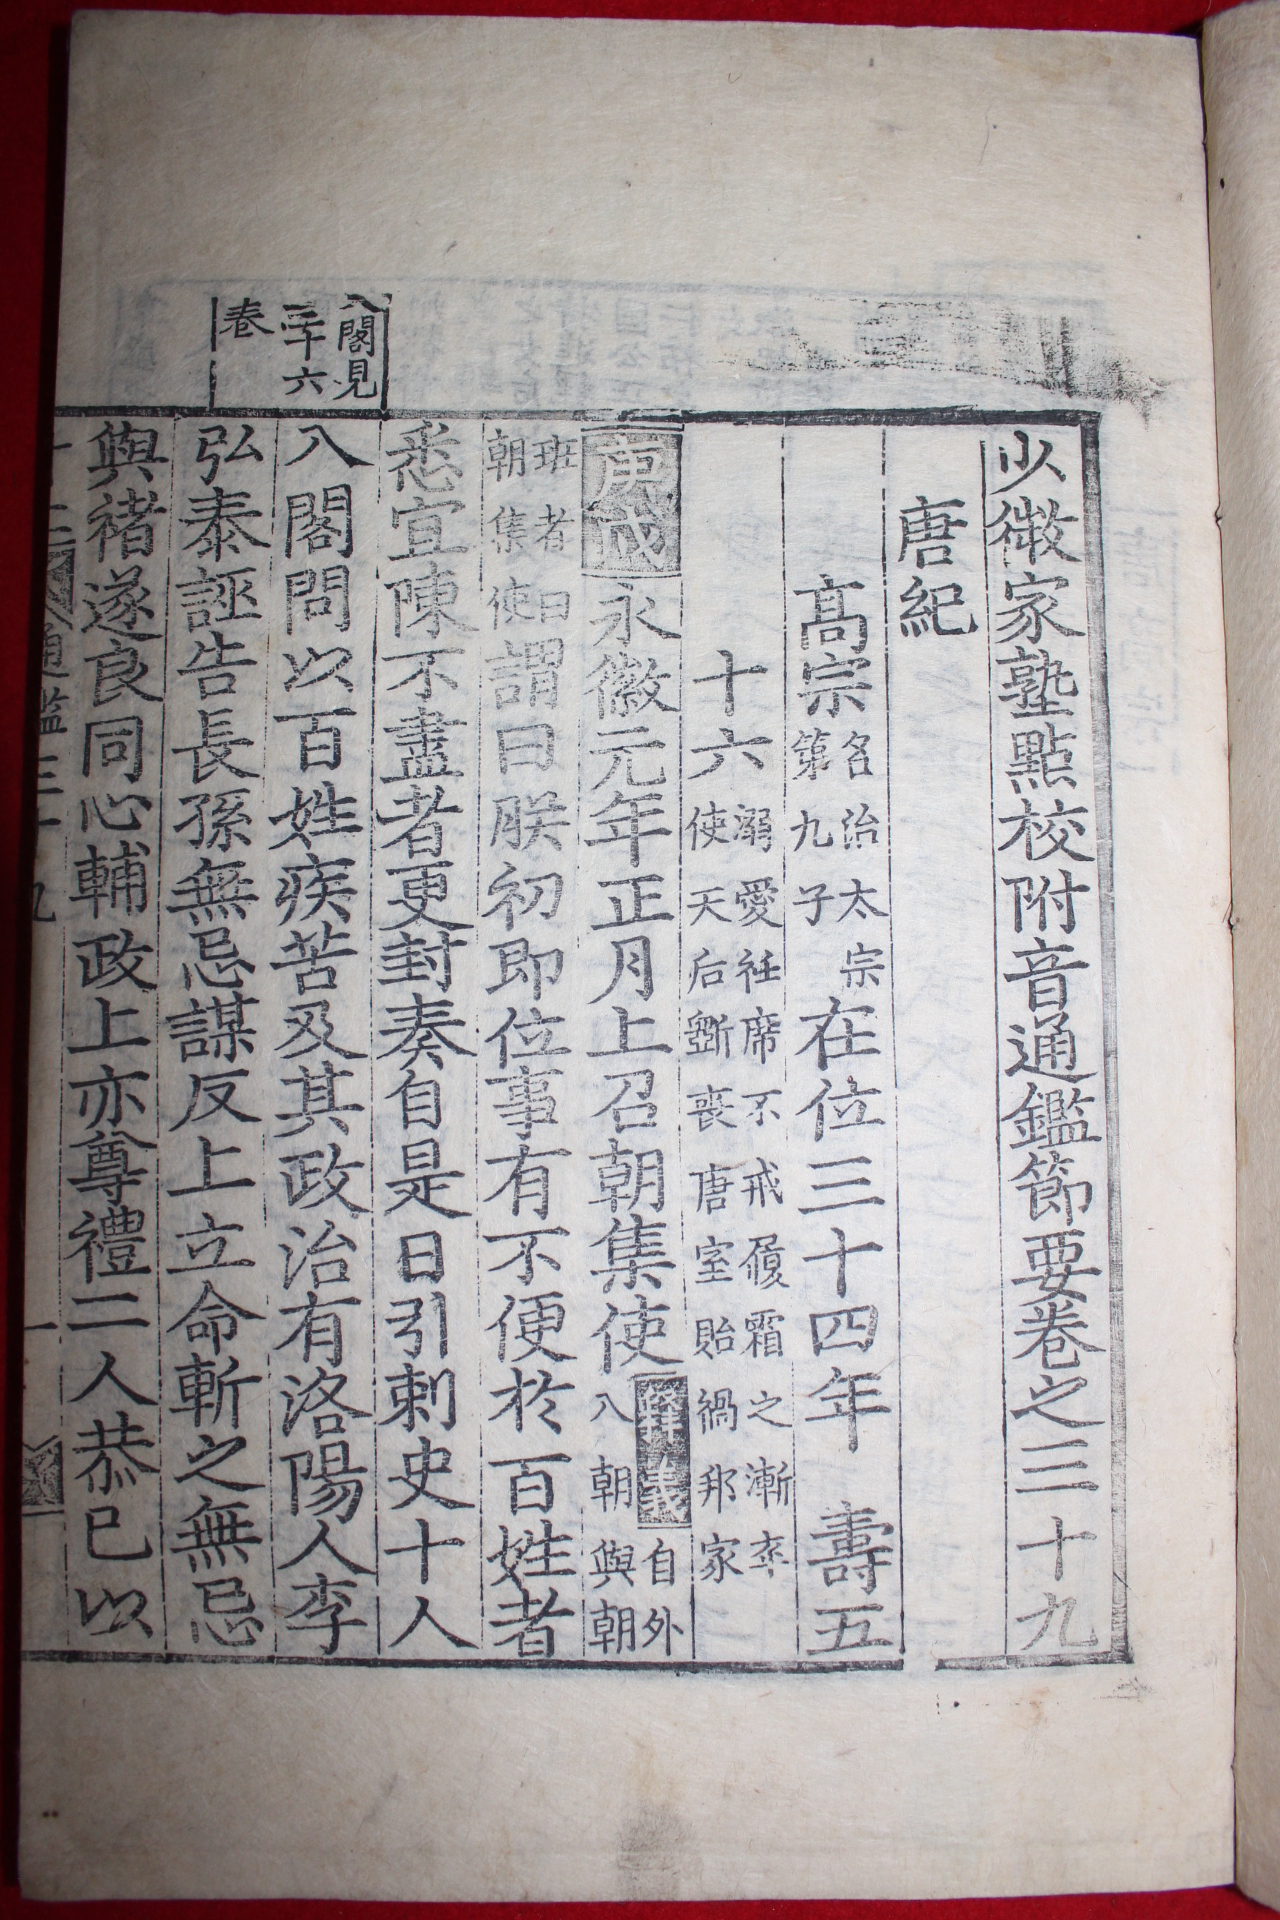 少微家塾點校附音通鑑節要卷之三十九
唐紀
高宗名治太宗第九子在位三十四年　壽五
十六溺愛衽席不戒履霜之漸卒使天后斲喪唐室貽禍邦家
庚戌永徽元年正月上召朝集使釋義自外入朝與朝
班者曰朝集使謂曰朕初即位事有不便於百姓者
悉宜陳不盡者更封奏自是日引刺史十人
入閣見三十六卷
入閣問以百姓疾苦及其政治有洛陽人李
弘泰誣告長孫無忌謀反上立命斬之無忌
與褚遂良同心輔政上亦尊禮二人恭已以
通鑑三十九　一